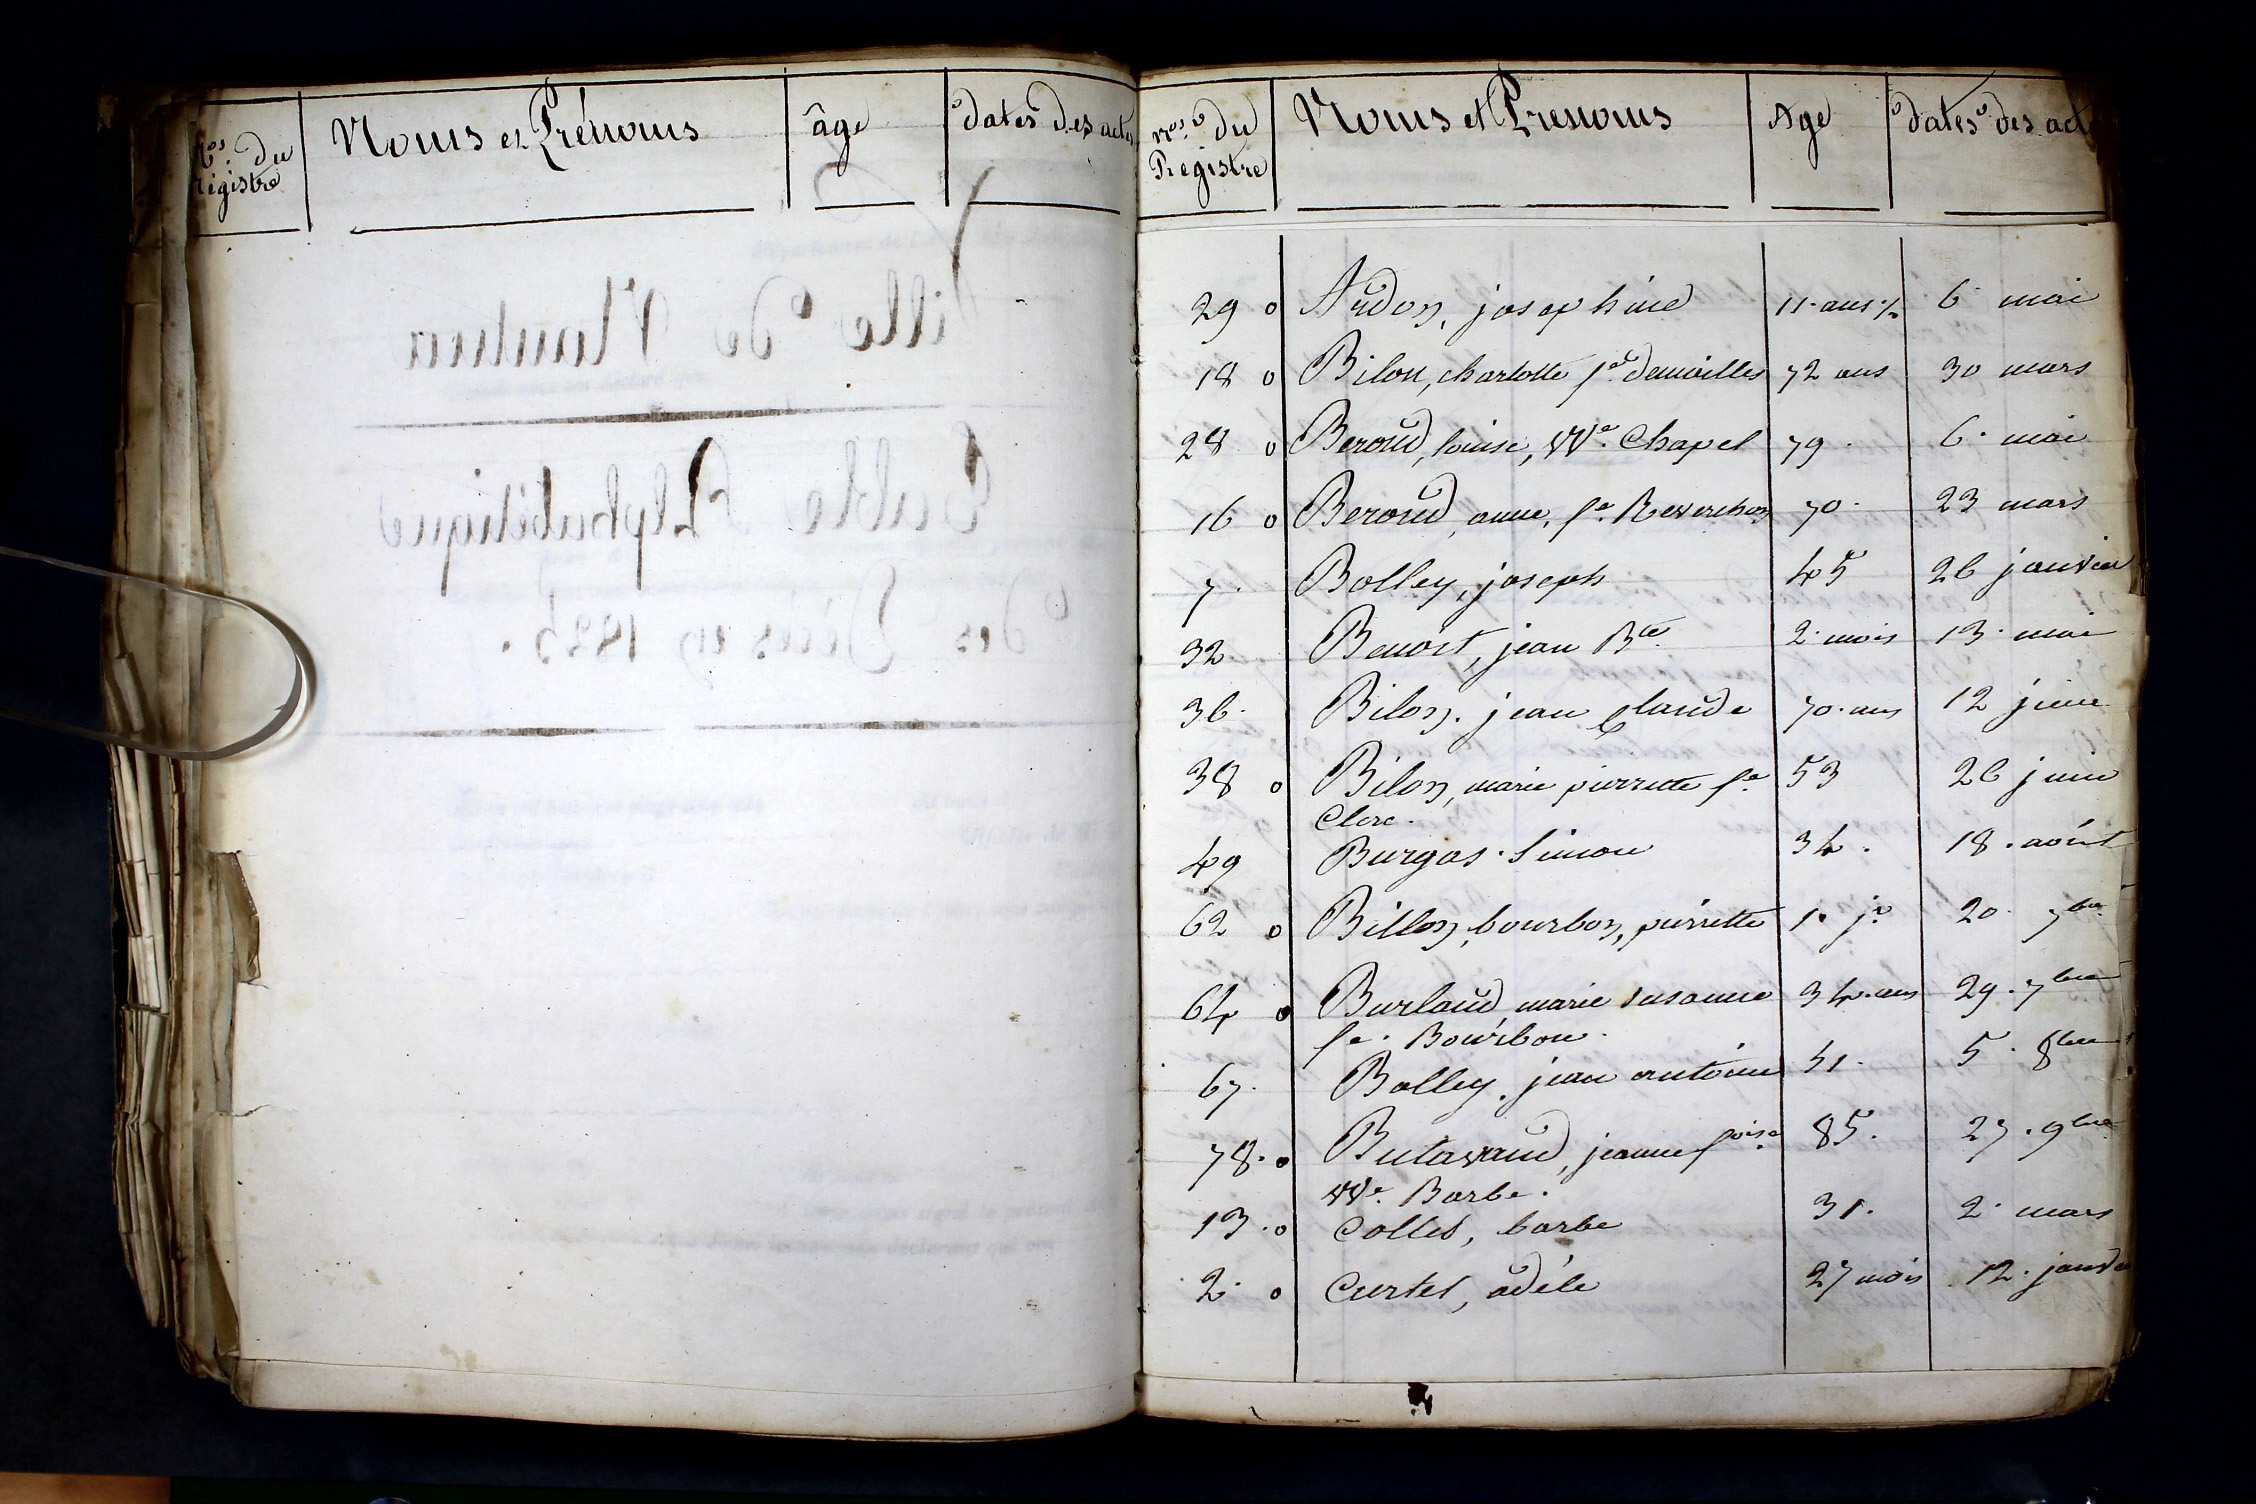 Nos. du
régistre
Noms et Prénoms
âge
dates des actes
Nos. du
Registre
Noms et Prenoms
Age
dates des act
Ville de Nantua
Table Alphabétique
des Décès en 1825.
29 o Audon, josephine 11. ans ½ 6 mai
18 o Bilon, charlotte fe. demoilles 72 ans 30 mars
28 o Beroud, louise, vve. Chapel 79. 6. mai
16 o Beroud, anne, fe. Reverchon 70. 23 mars
7. Bolley, joseph 45 26 janvier
32 Benoit, jean Bte. 2. mois 13. mai
36. Bilon. jean claude 70. ans 12 juin
38 o Bilon, marie pierrette fe. 53 26 juin
Clerc.
49 Burgos. Simon 34. 18. août
62 o Billon, bourbon, pierrette 1. je. 20. 7bre
64 o Burland, marie susanne 34. ans 29. 7bre
fe. Bourbon.
67. Bolley, jean antoine 51. 5. 8bre
78. o Butavand, jeanne foise. 85. 27. 9bre
vve. Barbe.
13. o Collet, barbe 31. 2. mars
2. o Curtet, adèle 27 mois 12. janv